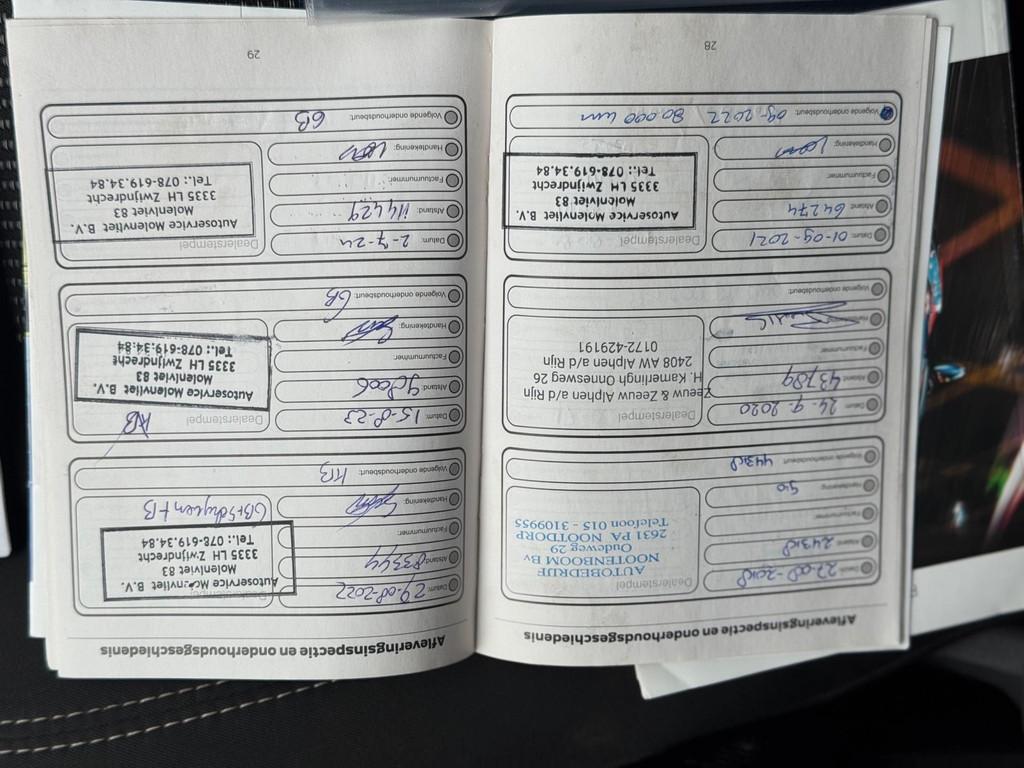 Afleveringsinspectie en onderhoudsgeschiedenis
Datum: 27-08-2018
Afstand:
Factuurnummer:
Handtekening:
Volgende onderhoudsbeurt:
Dealerstempel
AUTOBEDRIJF
NOOTENBOOM BV
Oudeweg 29
2631 PA NOOTDORP
Telefoon 015 - 3109955
Datum: 24-9-2020
Afstand: 43789
Factuurnummer:
Handtekening:
Volgende onderhoudsbeurt:
Dealerstempel
Zeeuw & Zeeuw Alphen a/d Rijn
H. Kamerlingh Onnesweg 26
2408 AW Alphen a/d Rijn
0172-429191
Datum: 01-09-2021
Afstand: 64274
Factuurnummer:
Handtekening:
Volgende onderhoudsbeurt: 09-2022 80.000 km
Dealerstempel
Autoservice Molenvliet B.V.
Molenvliet 83
3335 LH Zwijndrecht
Tel.: 078-619.34.84
28
Afleveringsinspectie en onderhoudsgeschiedenis
Datum: 29-08-2022
Afstand: 83344
Factuurnummer:
Handtekening:
Volgende onderhoudsbeurt:
Dealerstempel
Autoservice Molenvliet B.V.
Molenvliet 83
3335 LH Zwijndrecht
Tel.: 078-619.34.84
Datum: 15-8-23
Afstand: 98006
Factuurnummer:
Handtekening:
Volgende onderhoudsbeurt: GB
Dealerstempel
Autoservice Molenvliet B.V.
Molenvliet 83
3335 LH Zwijndrecht
Tel.: 078-619.34.84
Datum: 2-7-24
Afstand: 114429
Factuurnummer:
Handtekening:
Volgende onderhoudsbeurt: GB
Dealerstempel
Autoservice Molenvliet B.V.
Molenvliet 83
3335 LH Zwijndrecht
Tel.: 078-619.34.84
29